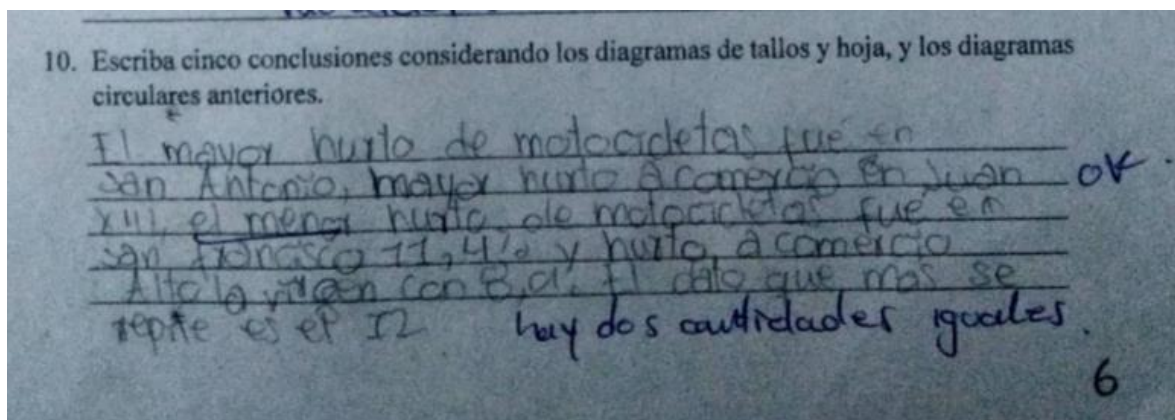 10. Escriba cinco conclusiones considerando los diagramas de tallos y hoja, y los diagramas
circulares anteriores.
El mayor hurto de motocicletas fue en
san Antonio, mayor hurto a comercio en Juan
XIII, el menor hurto de motocicletas fue en
san 11,4% y hurto a comercio
Alto la virgen con El dato que mas se
repite es el 12 hay dos cantidades iguales.
OK
6